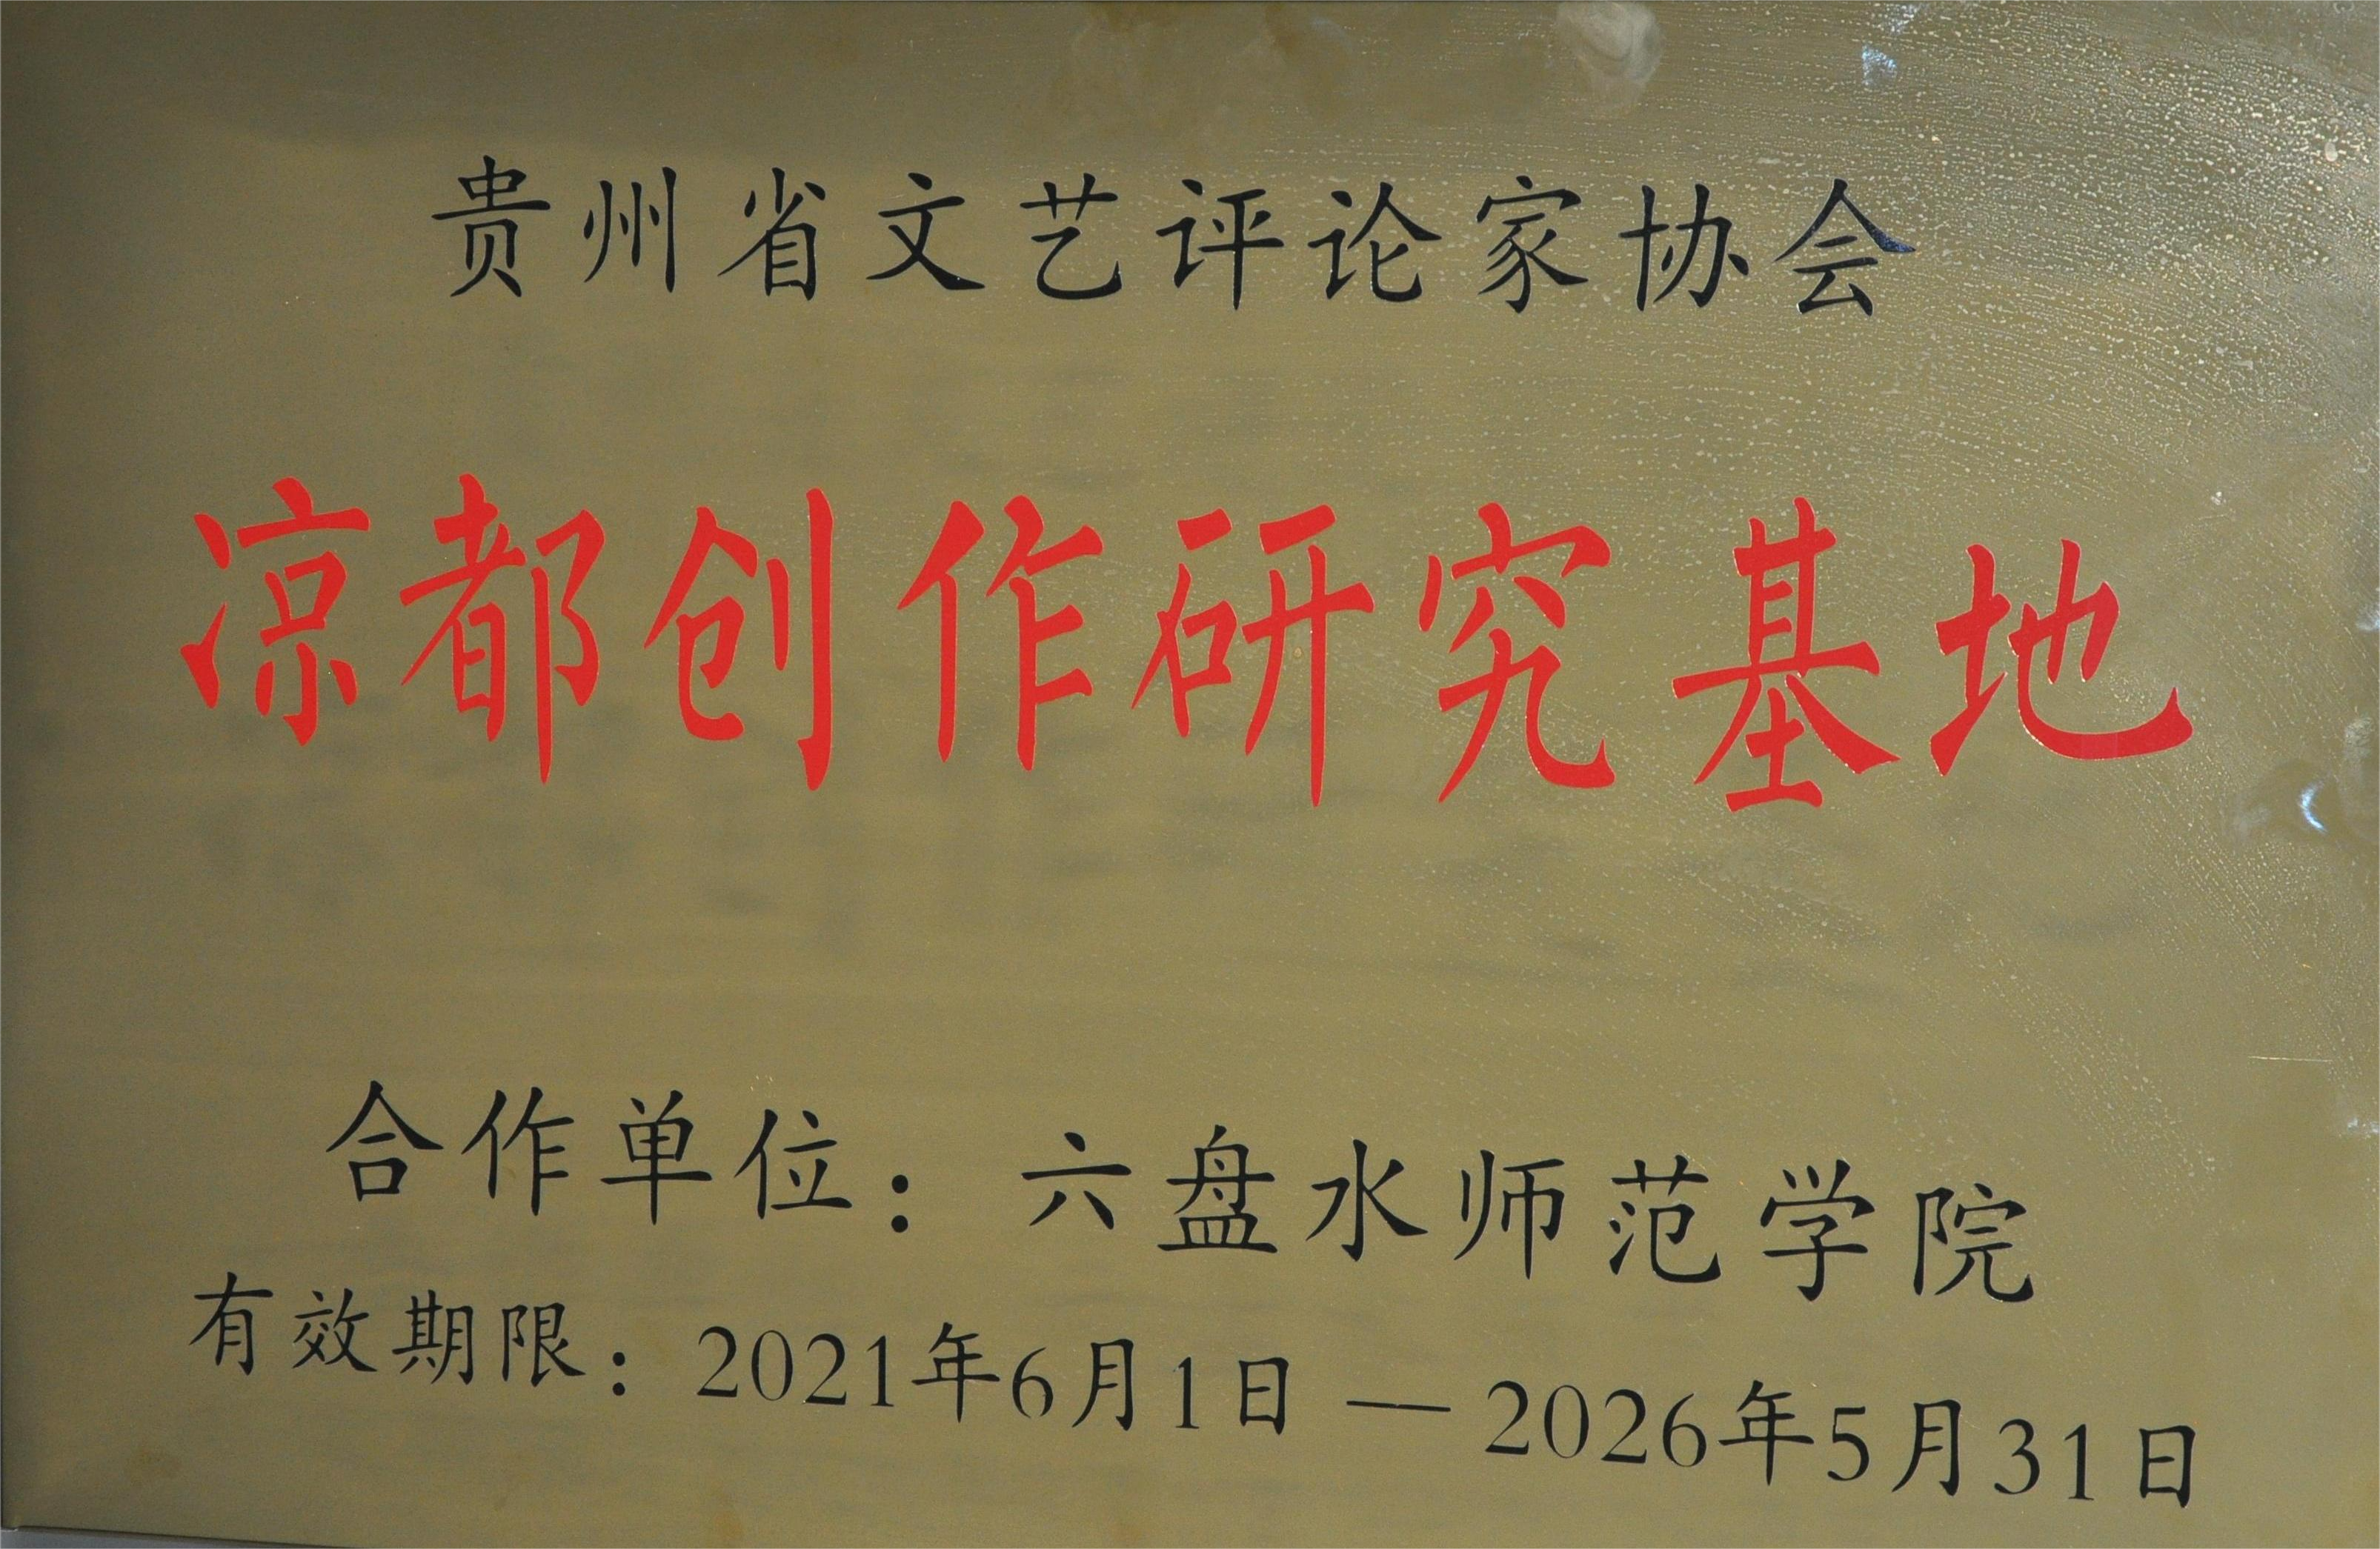 贵州省文艺评论家协会
凉都创作研究基地
合作单位：六盘水师范学院
有效期限：2021年6月1日—2026年5月31日